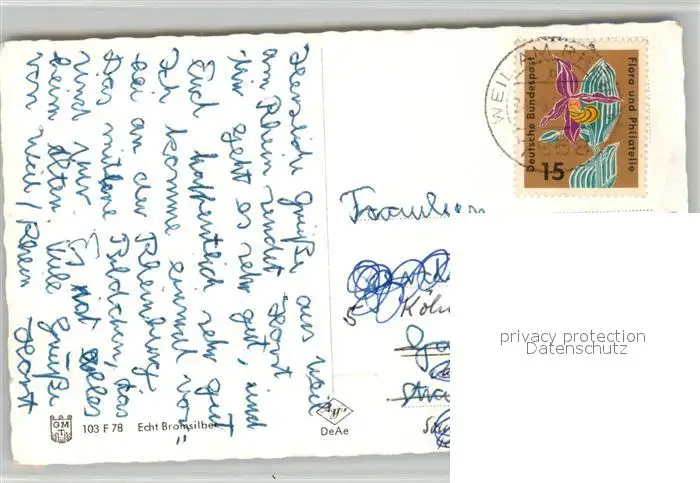 Herzliche Grüße aus Weil
am Rhein sendet Horst
Mir geht es sehr gut, und
Euch hoffentlich sehr gut
Ich komme einmal vor-
bei an der Rheinburg
Das mitlere Bildchen, das
sind wir. Es ist alles
beim Alten. Viele Grüße
von Weil / Rhein Horst
WEIL AM RH
Deutsche Bundespost
Flora und Philatelie
15
Fräulein
5 Köln
privacy protection
Datenschutz
GM
103 F 78 Echt Bromsilber
Agfa
DeAe